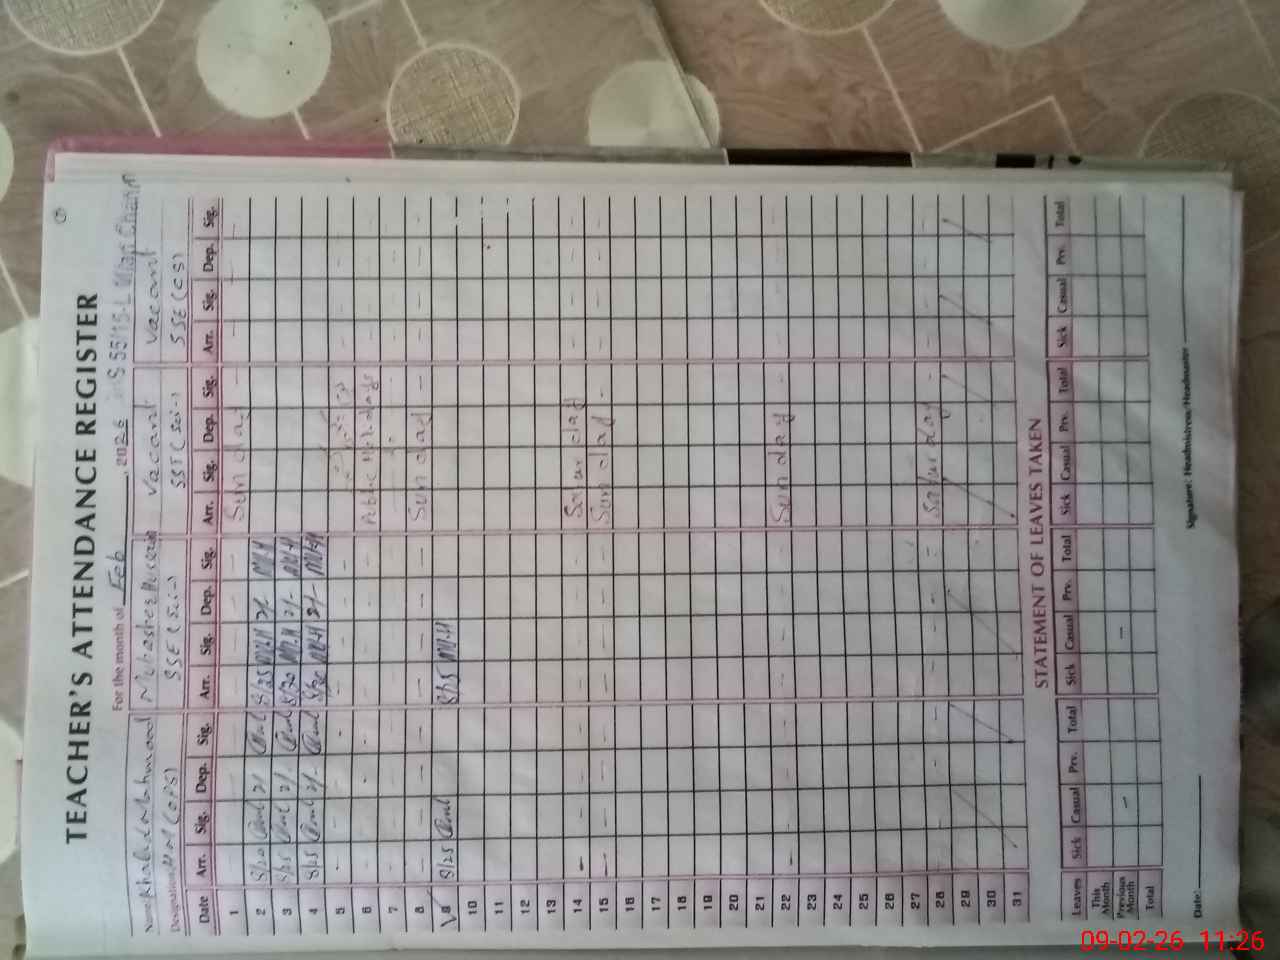 TEACHER'S ATTENDANCE REGISTER
For the month of Feb, 2026 55/15-L Mian Channu
Name Khalid Mahmood Mubasher Hussain Vacant Vacant
Designation HM (OPS) SSE (Sci-) SST (Sci-) SSE (CS)
Date Arr. Sig. Dep. Sig. Arr. Sig. Dep. Sig. Arr. Sig. Dep. Sig. Arr. Sig. Dep. Sig.
1 Sunday
2 8/20 2/- 8/25 2/-
3 8/25 2/- 8/20 2/-
4 8/25 2/- 8/20 2/-
5
6 Public Holidays
7
8 Sunday
9 8/25 8/15
10
11
12
13
14 Saturday
15 Sunday
16
17
18
19
20
21
22 Sunday
23
24
25
26
27
28 Saturday
29
30
31
STATEMENT OF LEAVES TAKEN
Leaves Sick Casual Prv. Total Sick Casual Prv. Total Sick Casual Prv. Total Sick Casual Prv. Total
This Month
Previous Month - -
Total
Date: Signature: Headmistress/Headmaster
09-02-26 11:26